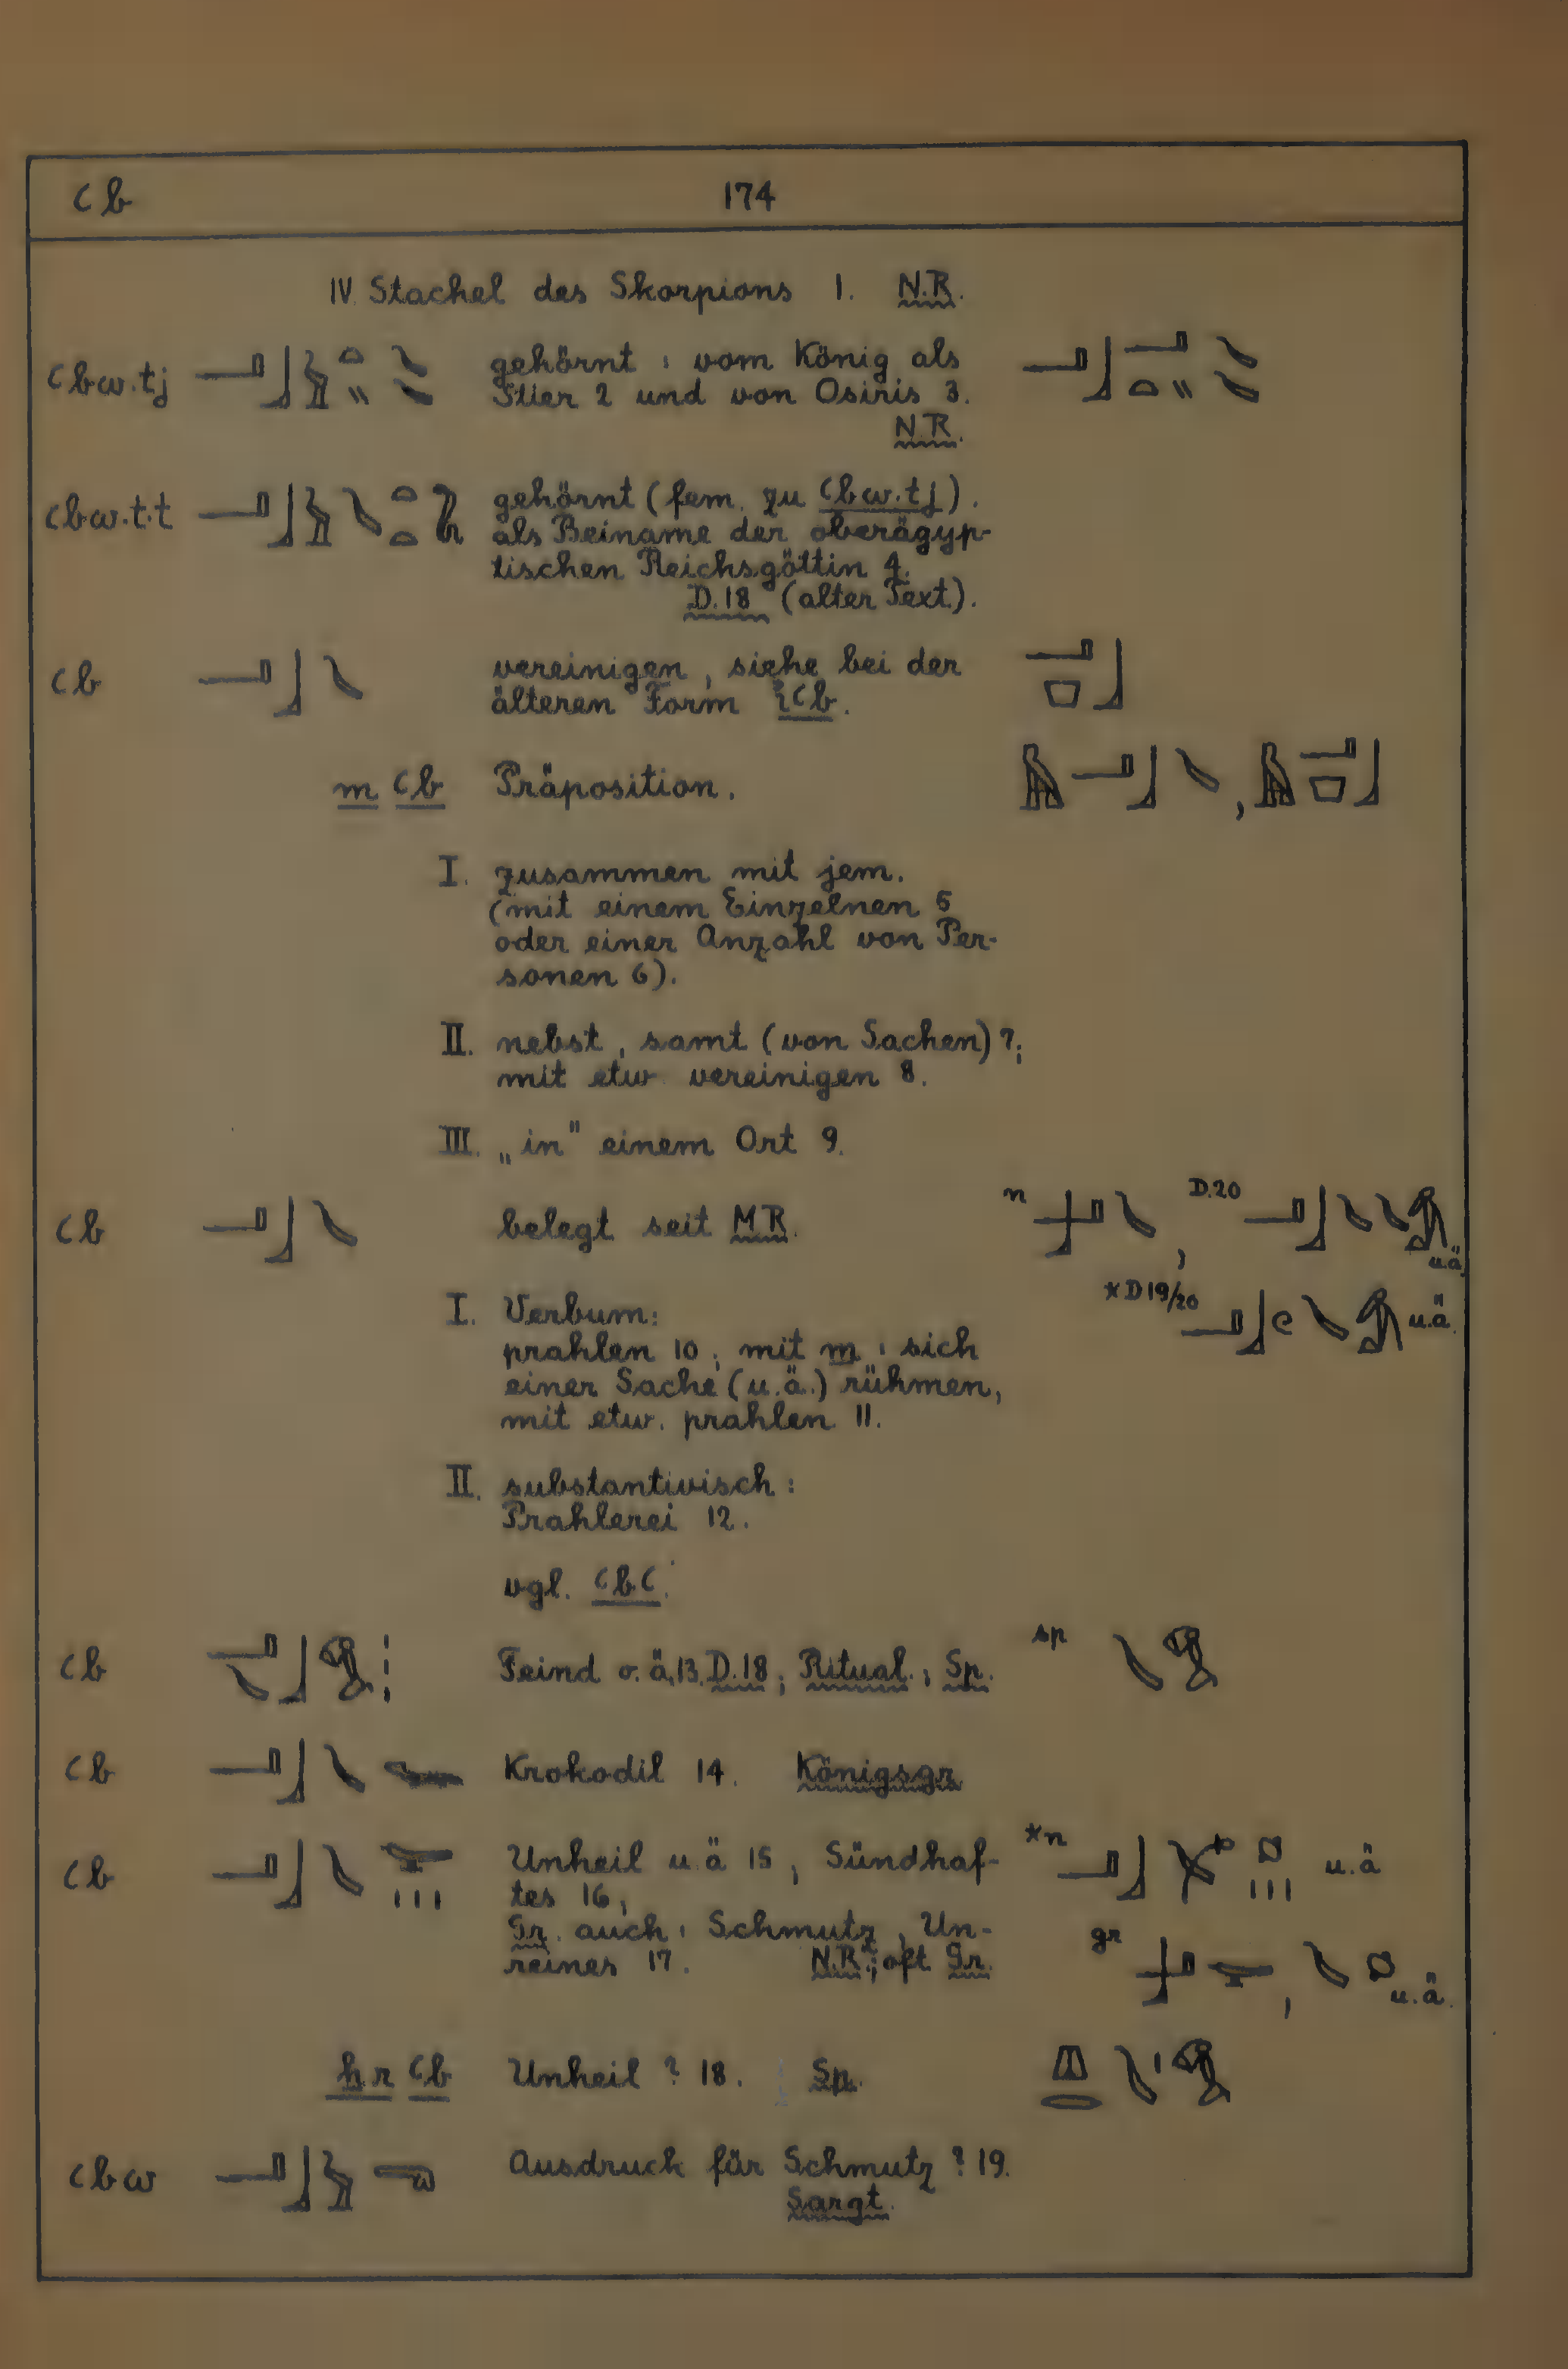 ꜥb 174
IV. Stachel des Skorpions 1. N.R.
ꜥbw.tj gehörnt: vom König als
Stier 2 und von Osiris 3.
N.R.
ꜥbw.t.t gehörnt (fem. zu ꜥbw.tj).
als Beiname der oberägyp-
tischen Reichsgöttin 4.
D.18 (alter Text).
ꜥb vereinigen, siehe bei der
älteren Form iꜥb.
m ꜥb Präposition.
I. zusammen mit jem.
(mit einem Einzelnen 5
oder einer Anzahl von Per-
sonen 6).
II. nebst, samt (von Sachen) 7;
mit etw. vereinigen 8.
III. „in" einem Ort 9.
ꜥb belegt seit M.R. n , D.20 u.ä.
*D 19/20 u.ä.
I. Verbum:
prahlen 10; mit m: sich
einer Sache (u.ä.) rühmen,
mit etw. prahlen 11.
II. substantivisch:
Prahlerei 12.
vgl. ꜥbꜥ.
ꜥb Feind o.ä. 13. D.18; Ritual.; Sp. sp
ꜥb Krokodil 14. Königsgr.
ꜥb Unheil u.ä 15, Sündhaf- *n u.ä
tes 16;
Gr. auch: Schmutz, Un-
reines 17. N.R.*; oft Gr. gr , u.ä.
ẖr ꜥb Unheil? 18. Sp.
ꜥbw Ausdruck für Schmutz? 19.
Sargt.